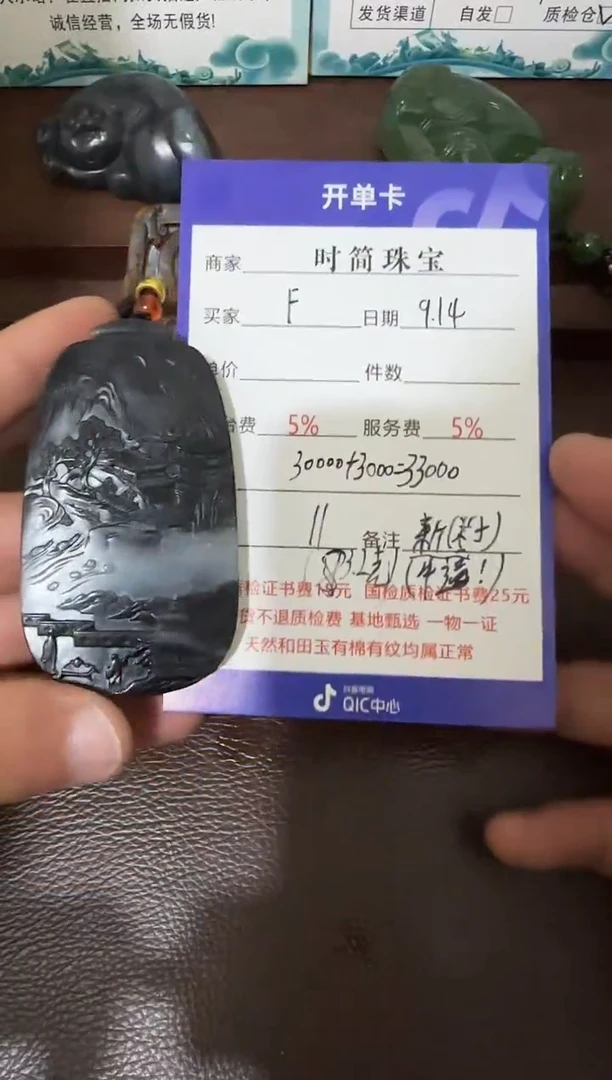 诚信经营，全场无假货!
发货渠道 自发□ 质检仓
开单卡
商家 时简珠宝
买家 F 日期 9.14
单价 件数
台费 5% 服务费 5%
30000+3000=33000
11 备注 新(籽)
检证书费19元 国检质检证书费25元
货不退质检费 基地甄选 一物一证
天然和田玉有棉有纹均属正常
抖音电商
QIC中心